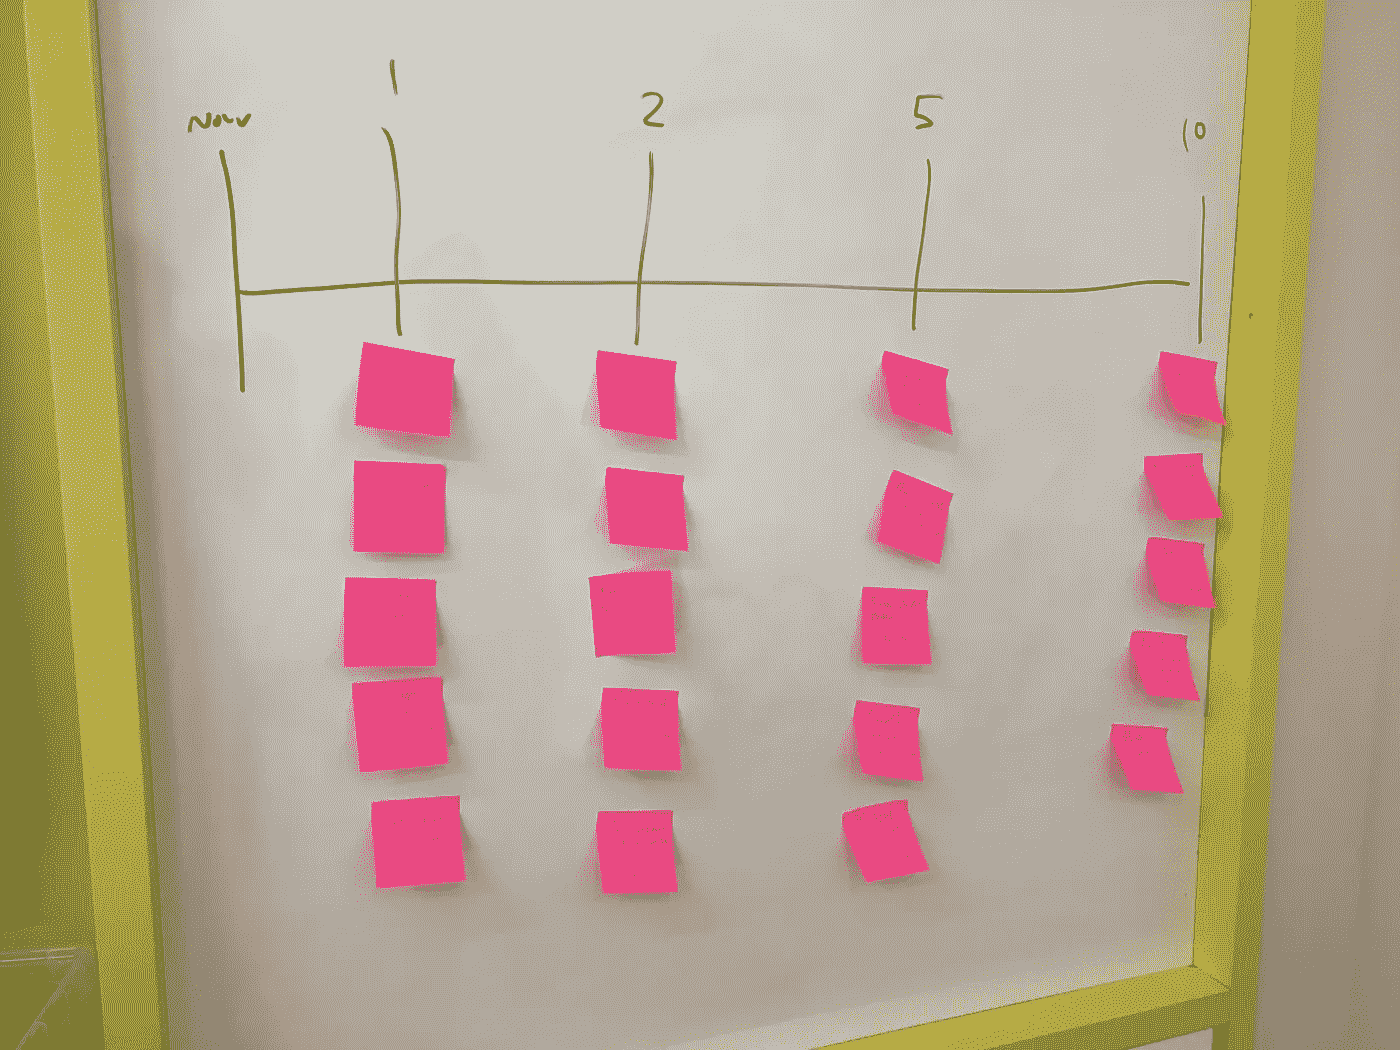 Now 1 2 5 10